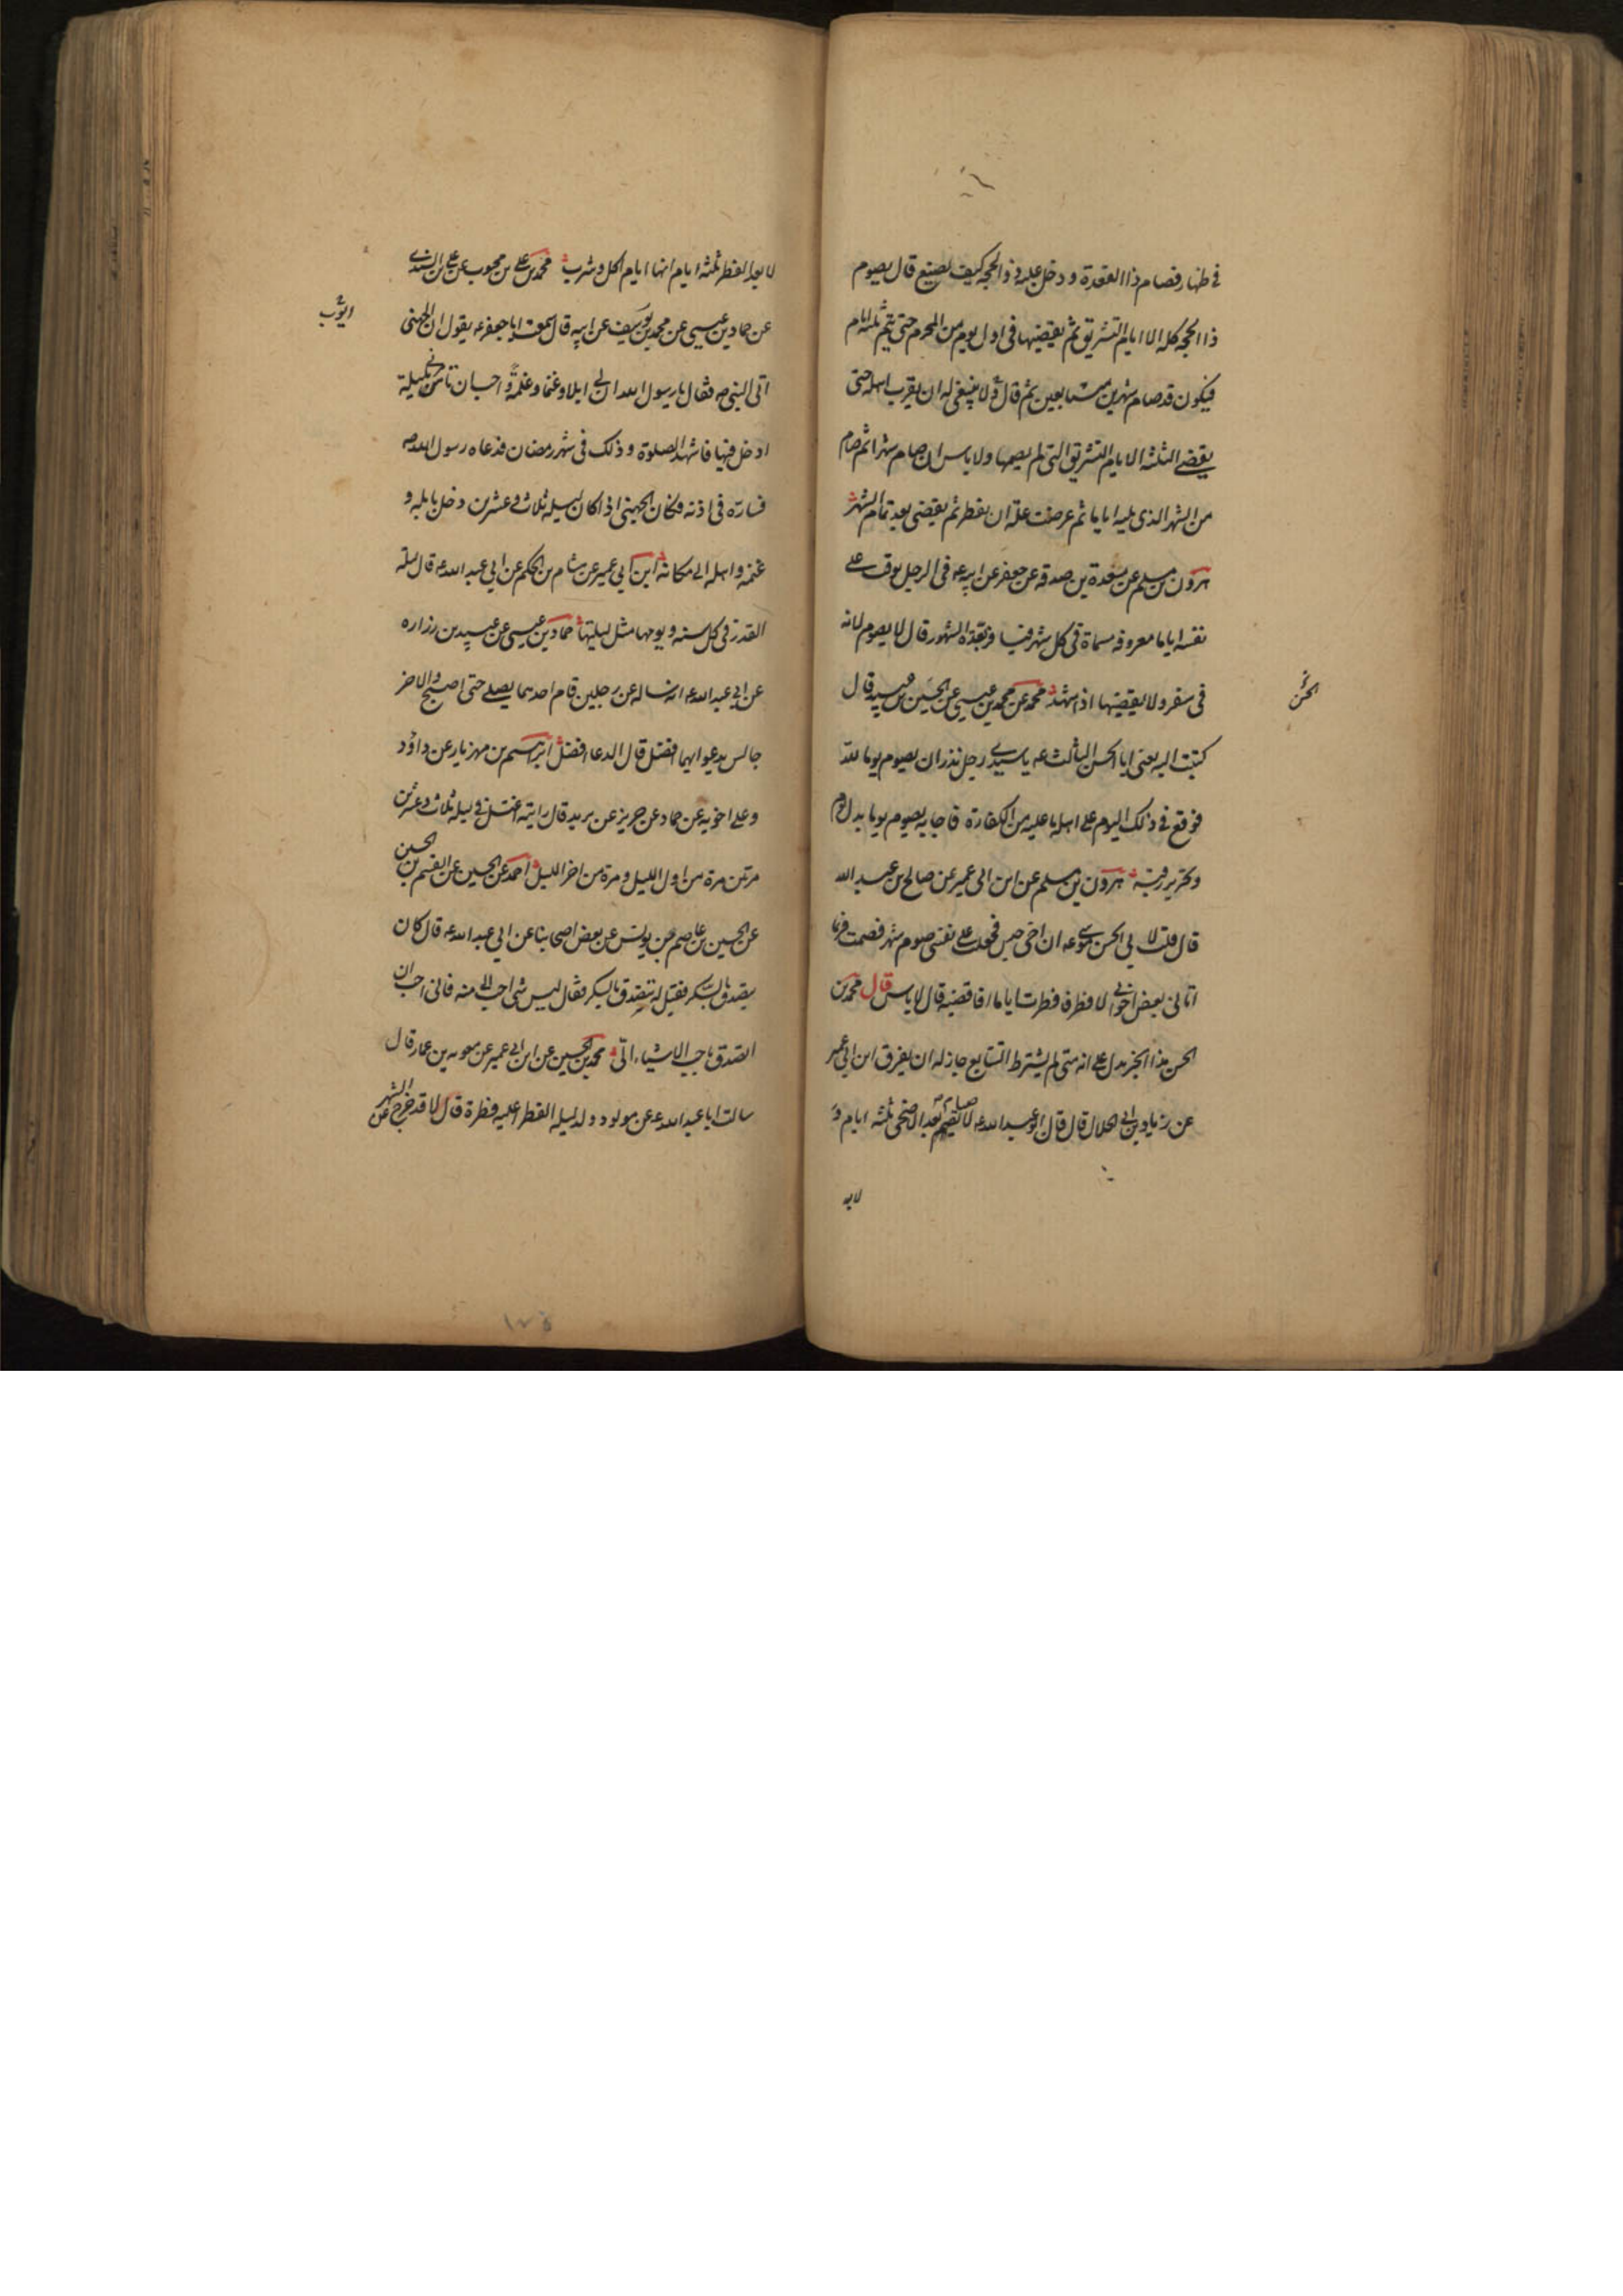 في ظهار فصام ذا القعدة و دخل عليه ذو الحجه كيف يصنع قال يصوم
ذا الحجه كله الا ايام التشريق ثم يقضيها في اول يوم من المحرم حتى يتم ثلثه ايام
فيكون قد صام شهرين متتابعين ثم قال و لا ينبغي له ان يقرب اهله حتى
يقضي الثلثه الايام التشريق التي لم يصمها ولا باس ان صام شهرا ثم صام
من الشهر الذي يليه اياما ثم عرضت علة ان يفطر ثم يقضي بعد تمام الشهر
هرون بن مسلم عن مسعدة بن صدقه عن جعفر عن ابيه ع في الرجل يوقت على
نفسه اياما معروفه مسماة في كل شهر فيسافر بعدة الشهور قال لا يصوم لانه
في سفر و لا يقضيها اذا شهد محمد عن محمد بن عيسى عن الحسين بن عبيد قال
الحسن
كتبت اليه يعني ابا الحسن الثالث ع يا سيدي رجل نذر ان يصوم يوما لله
فوقع في ذلك اليوم على اهله ما عليه من الكفارة فاجابه يصوم يوما بدل يوم
و تحرير رقبة هرون بن مسلم عن ابن ابي عمير عن صالح بن عبد الله
قال قلت لابي الحسن موسى ع ان اخي حبس فجعلت على نفسي صوم شهر فصمت فربما
اتاني بعض اخواني لافطر فافطرت اياما افاقضيه قال لا باس قال محمد بن
الحسن هذا الخبر يدل على انه متى لم يشترط التتابع جاز له ان يفرق ابن ابي عمير
عن زياد بن ابي الحلال قال قال ابو عبد الله ع لا صيام بعد الاضحى ثلثه ايام و
لا بعد
لا بعد الفطر ثلثه ايام انها ايام اكل و شرب محمد بن علي بن محبوب عن علي بن السندي
عن حماد بن عيسى عن محمد بن يوسف عن ابيه قال سمعت ابا جعفر ع يقول ان الجهني
ايوب
اتى النبي ص فقال يا رسول الله ان لي ابلا و غنما و غلمة و احب ان تامرني بليلة
ادخل فيها فاشهد الصلوة و ذلك في شهر رمضان فدعاه رسول الله ص
فساره في اذنه فكان الجهني اذا كان ليله ثلاث و عشرين دخل بابله و
غنمه و اهله الى مكانه ابن ابي عمير عن هشام بن الحكم عن ابي عبد الله ع قال ليله
القدر في كل سنه و يومها مثل ليلتها حماد بن عيسى عن عبيد بن زراره
عن ابي عبد الله ع انه ساله عن رجلين قام احدهما يصلي حتى اصبح و الاخر
جالس يدعو ايهما افضل قال الدعاء افضل ابراهيم بن مهزيار عن داود
و علي اخويه عن حماد عن حريز عن بريد قال رايته اغتسل في ليله ثلاث و عشرين
مرتين مرة من اول الليل و مرة من اخر الليل احمد عن الحسين عن القسم بن الحسين
عن الحسين بن عاصم بن يونس عن بعض اصحابنا عن ابي عبد الله ع قال كان
يتصدق بالسكر فقيل له تتصدق بالسكر فقال ليس شي احب الي منه فاني احب ان
اتصدق باحب الاشياء الي محمد بن الحسين عن ابن ابي عمير عن معويه بن عمار قال
سالت ابا عبد الله ع عن مولود ولد ليله الفطر اعليه فطرة قال لا قد خرج عن الشهر